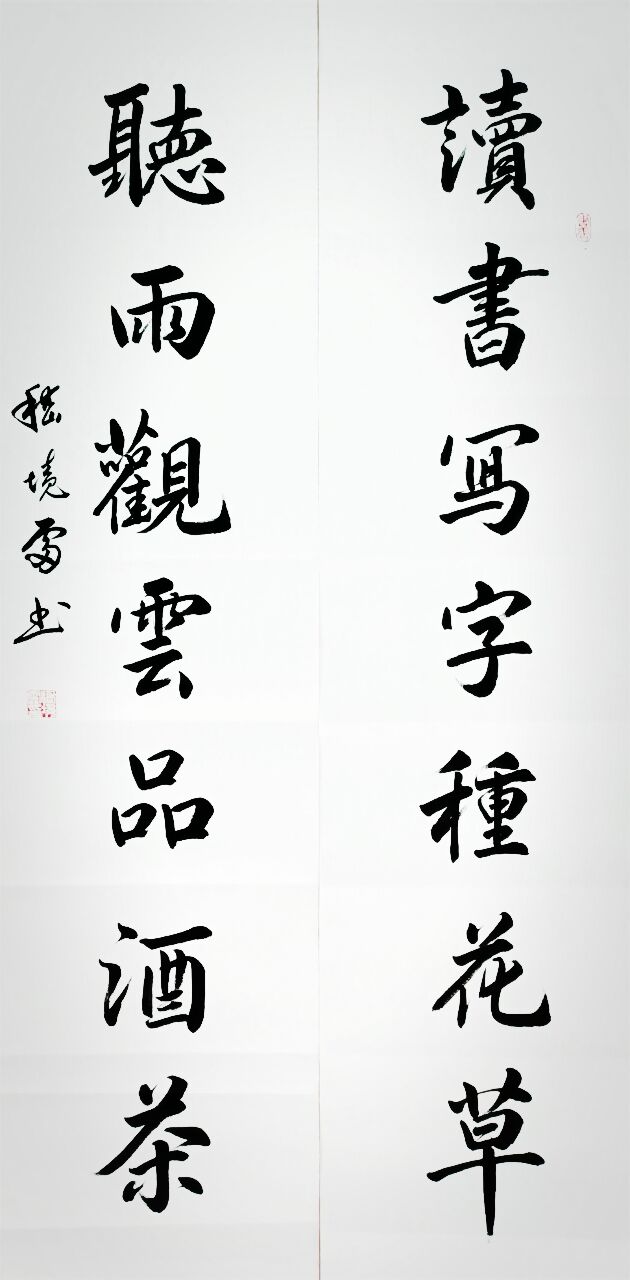 讀書寫字種花草
聽雨觀雲品酒茶
嵇境雷书